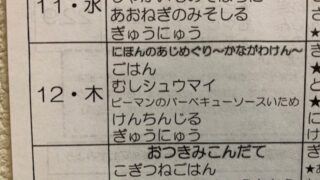 11・水
あおねぎのみそしる
ぎゅうにゅう
12・木
にほんのあじめぐり〜かながわけん〜
ごはん
むしシュウマイ
ピーマンのバーベキューソースいため
けんちんじる
ぎゅうにゅう
おつきみこんだて
こぎつねごはん